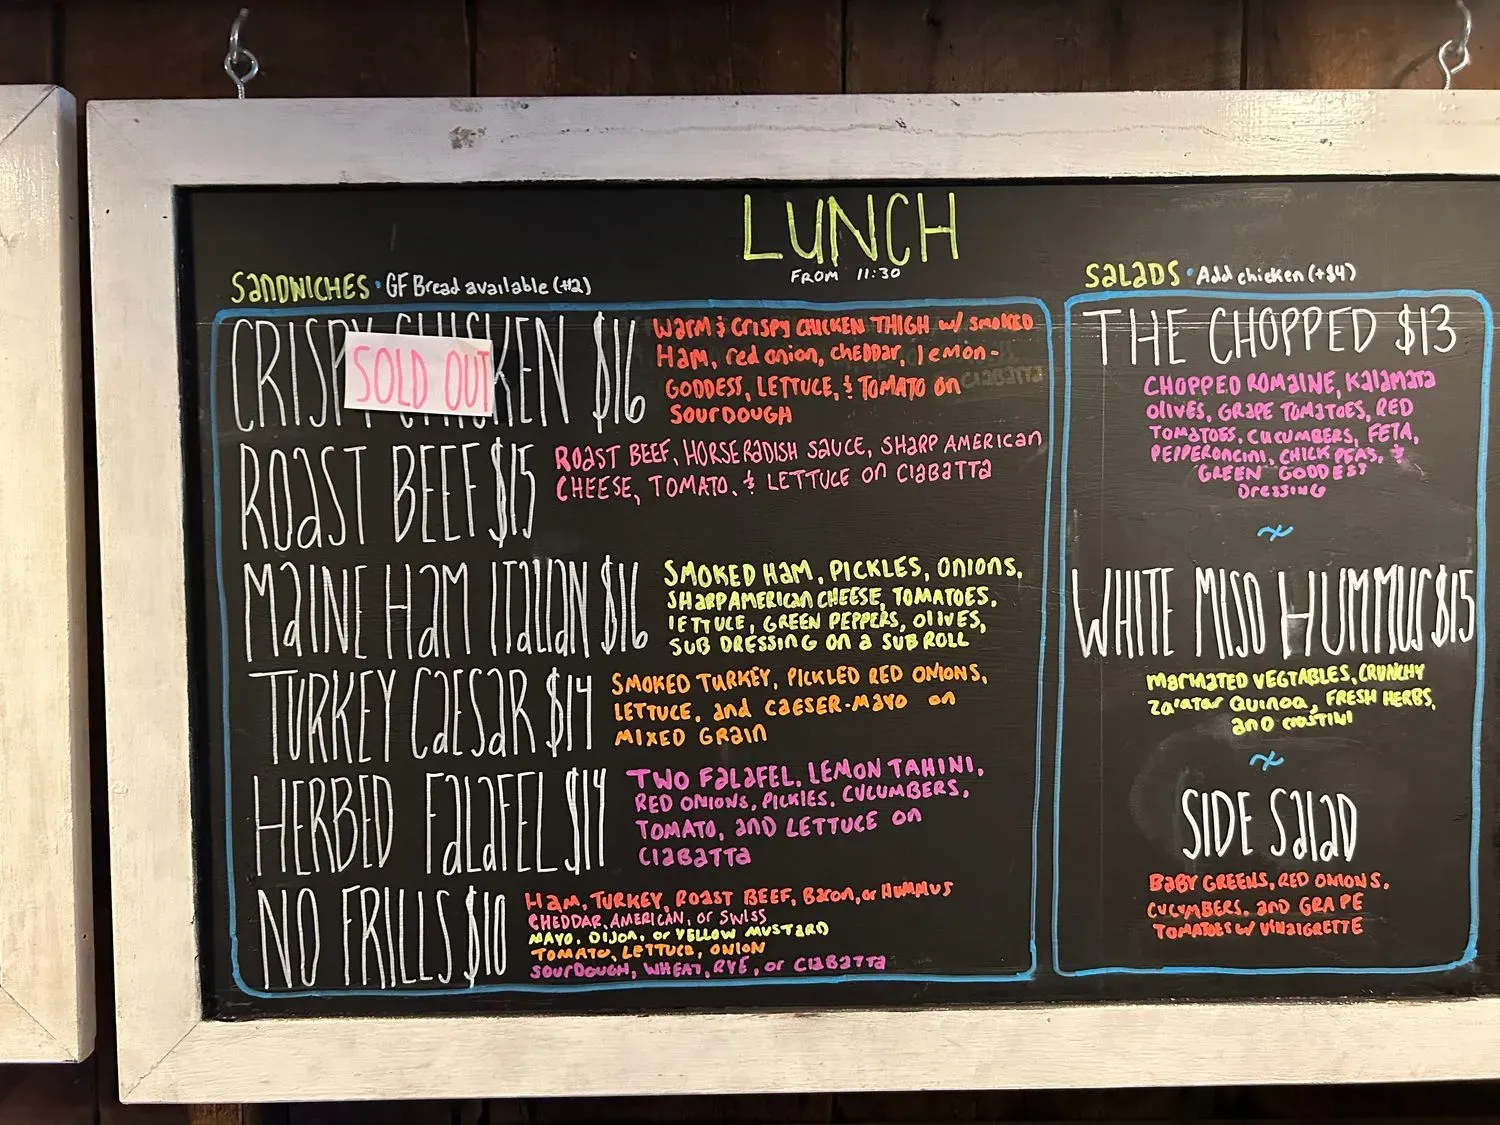 LUNCH
FROM 11:30
SANDWICHES • GF Bread available (+$2)
CRISPY CHICKEN $16
SOLD OUT
WARM & CRISPY CHICKEN THIGH W/ SMOKED
HAM, red onion, cheddar, lemon-
GODDESS, LETTUCE, & TOMATO on
SOURDOUGH
CIABATTA
ROAST BEEF $15
ROAST BEEF, HORSERADISH SAUCE, SHARP AMERICAN
CHEESE, TOMATO, & LETTUCE on CIABATTA
MAINE HAM ITALIAN $16
SMOKED HAM, PICKLES, ONIONS,
SHARP AMERICAN CHEESE, TOMATOES,
LETTUCE, GREEN PEPPERS, OLIVES,
SUB DRESSING ON A SUB ROLL
TURKEY CAESAR $14
SMOKED TURKEY, PICKLED RED ONIONS,
LETTUCE, and CAESER-MAYO on
MIXED GRAIN
HERBED FALAFEL $14
TWO FALAFEL, LEMON TAHINI,
RED ONIONS, PICKLES, CUCUMBERS,
TOMATO, AND LETTUCE ON
CIABATTA
NO FRILLS $10
HAM, TURKEY, ROAST BEEF, Bacon, or HUMMUS
CHEDDAR, AMERICAN, or SWISS
MAYO, DIJON, or YELLOW MUSTARD
TOMATO, LETTUCE, ONION
SOURDOUGH, WHEAT, RYE, or CIABATTA
SALADS • Add chicken (+$4)
THE CHOPPED $13
CHOPPED ROMAINE, KALAMATA
OLIVES, GRAPE TOMATOES, RED
TOMATOES, CUCUMBERS, FETA,
PEPPERONCINI, CHICK PEAS, &
GREEN GODDESS
DRESSING
WHITE MISO HUMMUS $15
MARINATED VEGTABLES, CRUNCHY
ZA'ATAR QUINOA, FRESH HERBS,
AND CROSTINI
SIDE SALAD
BABY GREENS, RED ONIONS,
CUCUMBERS, AND GRAPE
TOMATOES W/ VINAIGRETTE